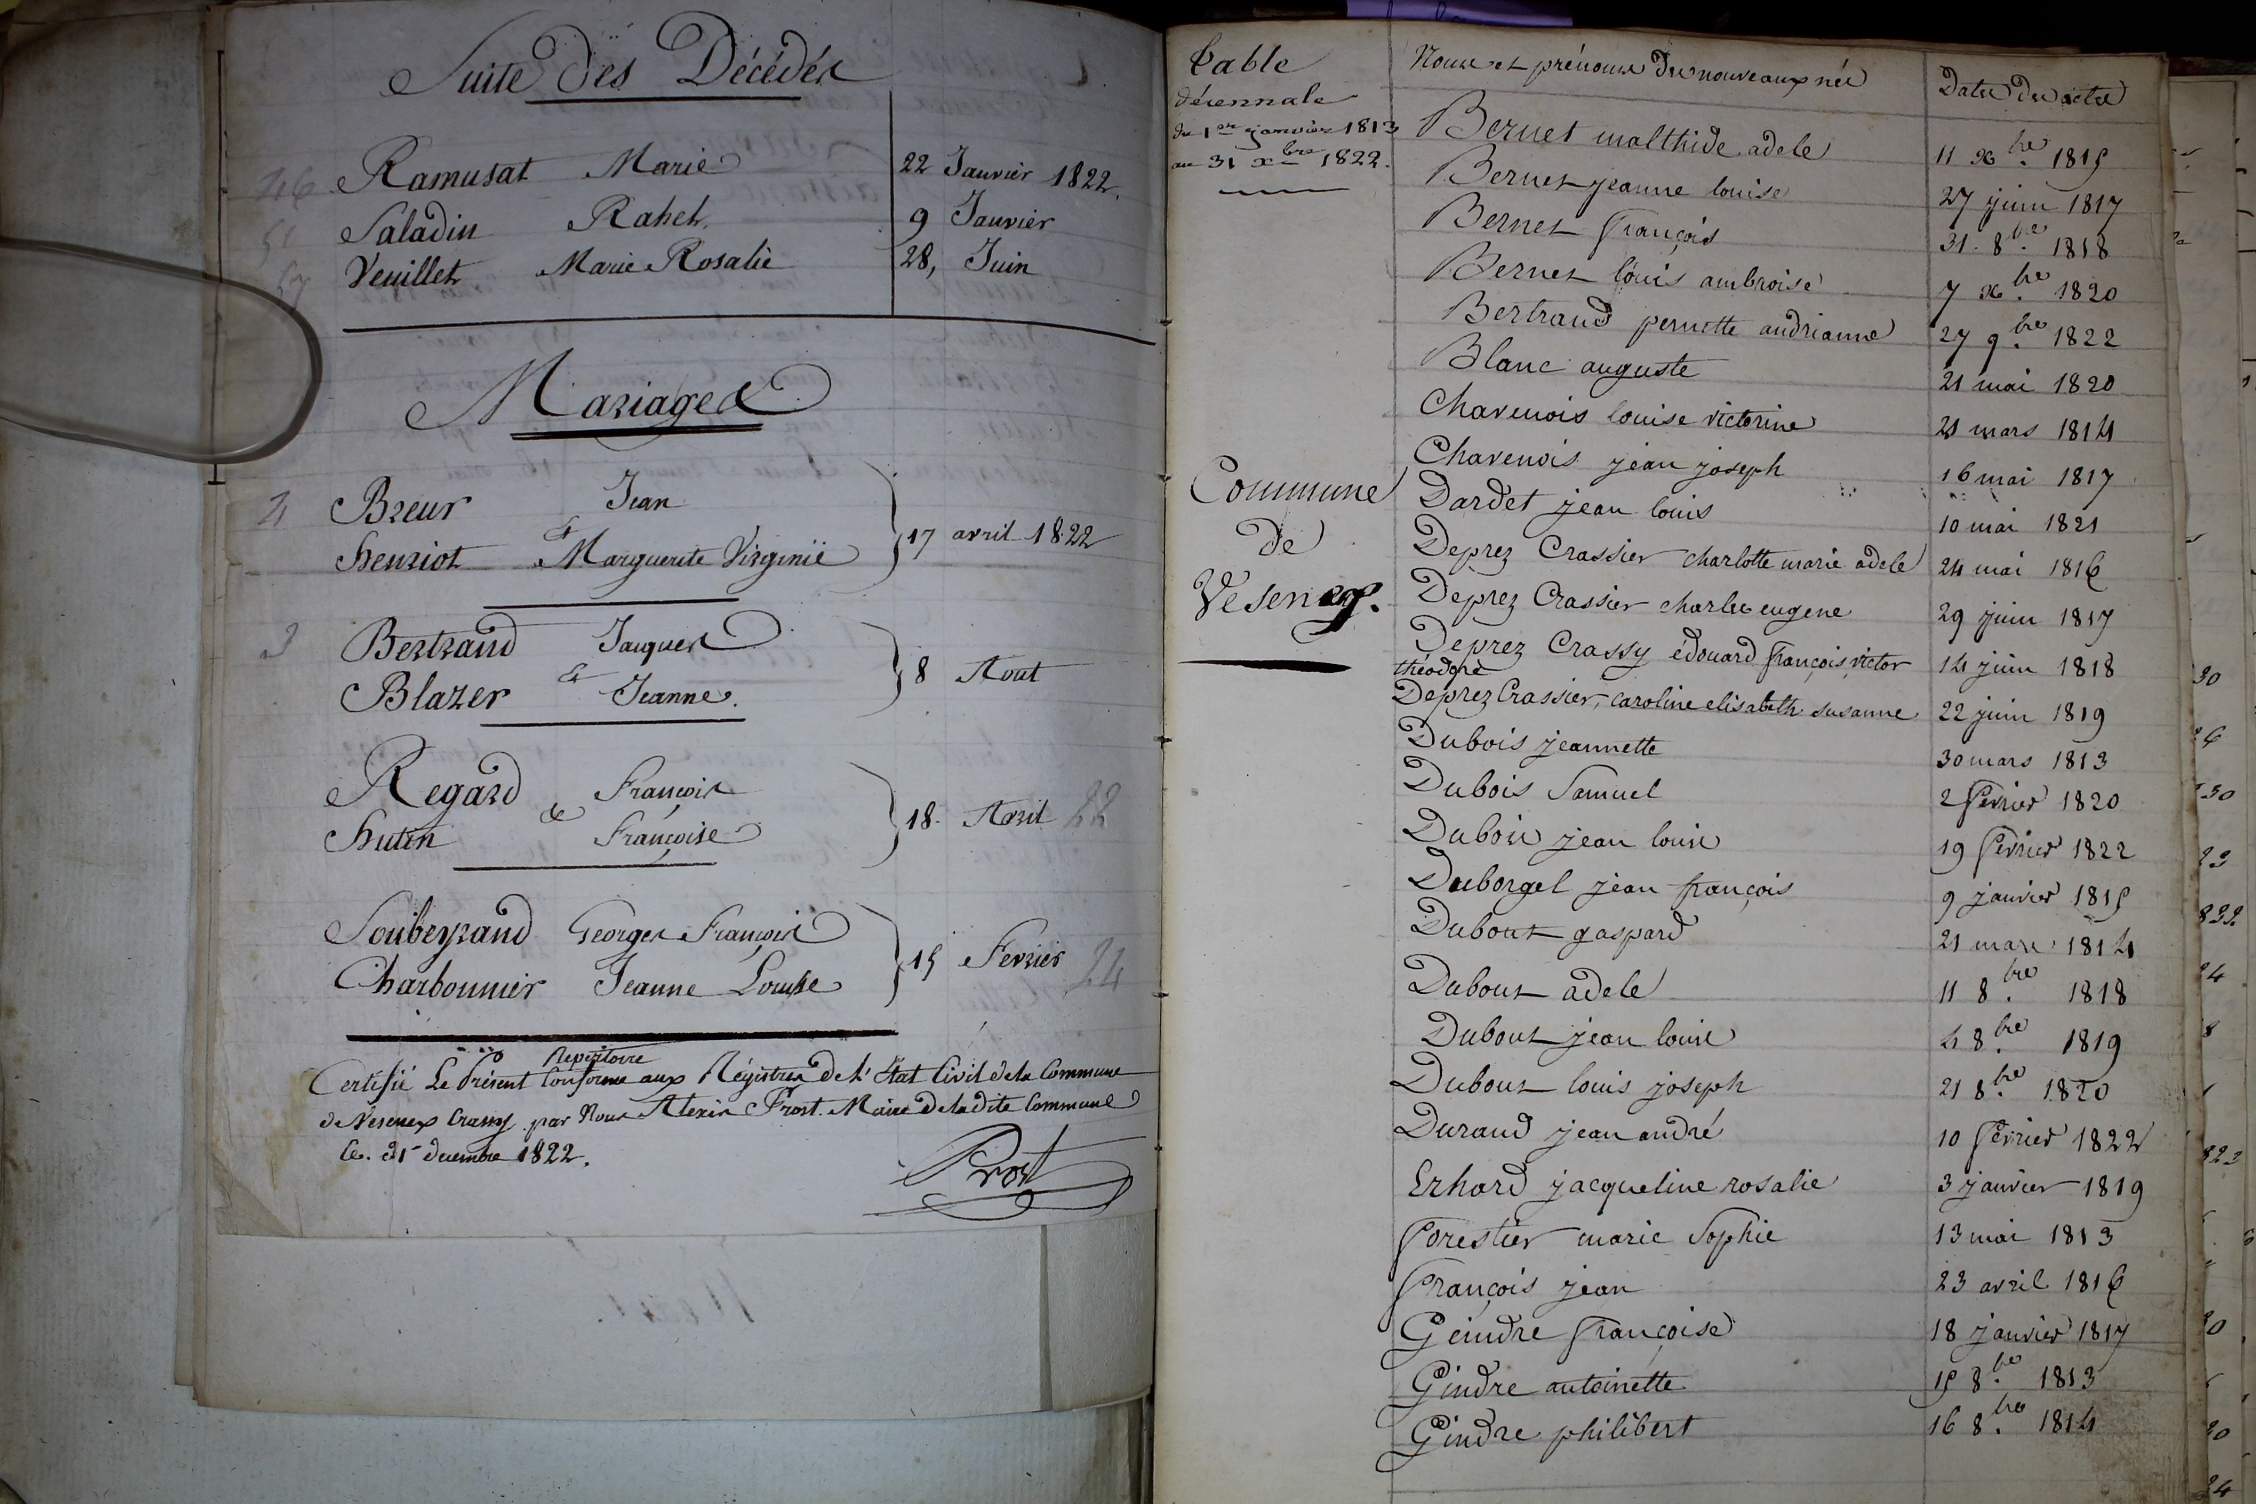 Suite des Décédés
46 Ramusat Marie 22 Janvier 1822.
51 Saladin Rahel. 9 Janvier
57 Veuillet Marie Rosalie 28, Juin
Mariages
4 Breur Jean
&
Henriot Marguerite Virginie 17 avril 1822
3 Bertrand Jacques
& 8 Aout
Blazer Jeanne.
Regard François
& 18. Avril 22
Hutin Françoise
Soubeyrand Georges François
15 Fevrier 24
Charbonnier Jeanne Louise
Repertoire
Certifié Le Présent Conforme aux Régistres de l'Etat Civil de la Commune
de Vesenex Crassy par Nous Alexis Prost. Maire de la dite Commune
le. 31 decembre 1822.
Prost
Table
décennale
du 1er janvier 1813
au 31 xbre 1822.
Commune
de
Vesenex.
Noms et prénoms des nouveaux nés Dates des actes
Bernet malthide adele 11 xbre. 1815
Bernet jeanne louise 27 juin 1817
Bernet François 31. 8bre. 1818
Bernet louis ambroise 7 xbre. 1820
Bertrand pernette andrianne 27 9bre. 1822
Blanc auguste 21 mai 1820
Chavenois louise victorine 21 mars 1814
Chavenois jean joseph 16 mai 1817
Dardet jean louis 10 mai 1821
Deprez Crassier charlotte marie adele 24 mai 1816
Deprez Crassier charles eugene 29 juin 1817
Deprez Crassy édouard François victor 14 juin 1818
théodore
Deprez Crassier, caroline elisabeth susanne 22 juin 1819
Dubois jeannette 30 mars 1813
Dubois Samuel 2 Fevrier 1820
Dubois jean louis 19 Fevrier 1822
Duborgel jean françois 9 janvier 1815
Dubout gaspard 21 mars 1814
Dubout adele 11 8bre. 1818
Dubout jean louis 4 8bre. 1819
Dubout louis joseph 21 8bre. 1820
Durand jean andré 10 Fevrier 1822
Erhard jacqueline rosalie 3 janvier 1819
Forestier marie Sophie 13 mai 1813
François jean 23 avril 1816
Geindre Françoise 18 janvier 1817
Gindre antoinette 15 8bre. 1813
Gindre philibert 16 8bre. 1814